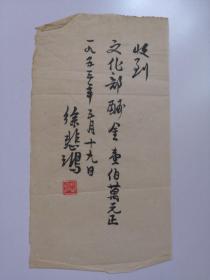 收到
文化部酬金壹佰萬元正
一九五三年三月十九日
徐悲鴻